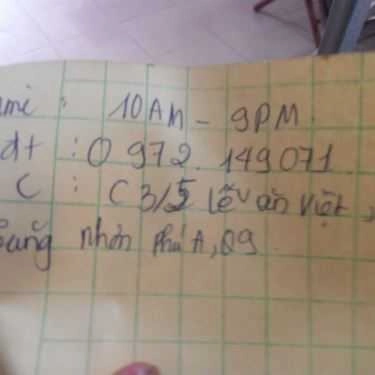 ame: 10AM - 9PM
dt: 0972.149071
C: C3/5 lê văn việt,
nhơn phú A, Q9